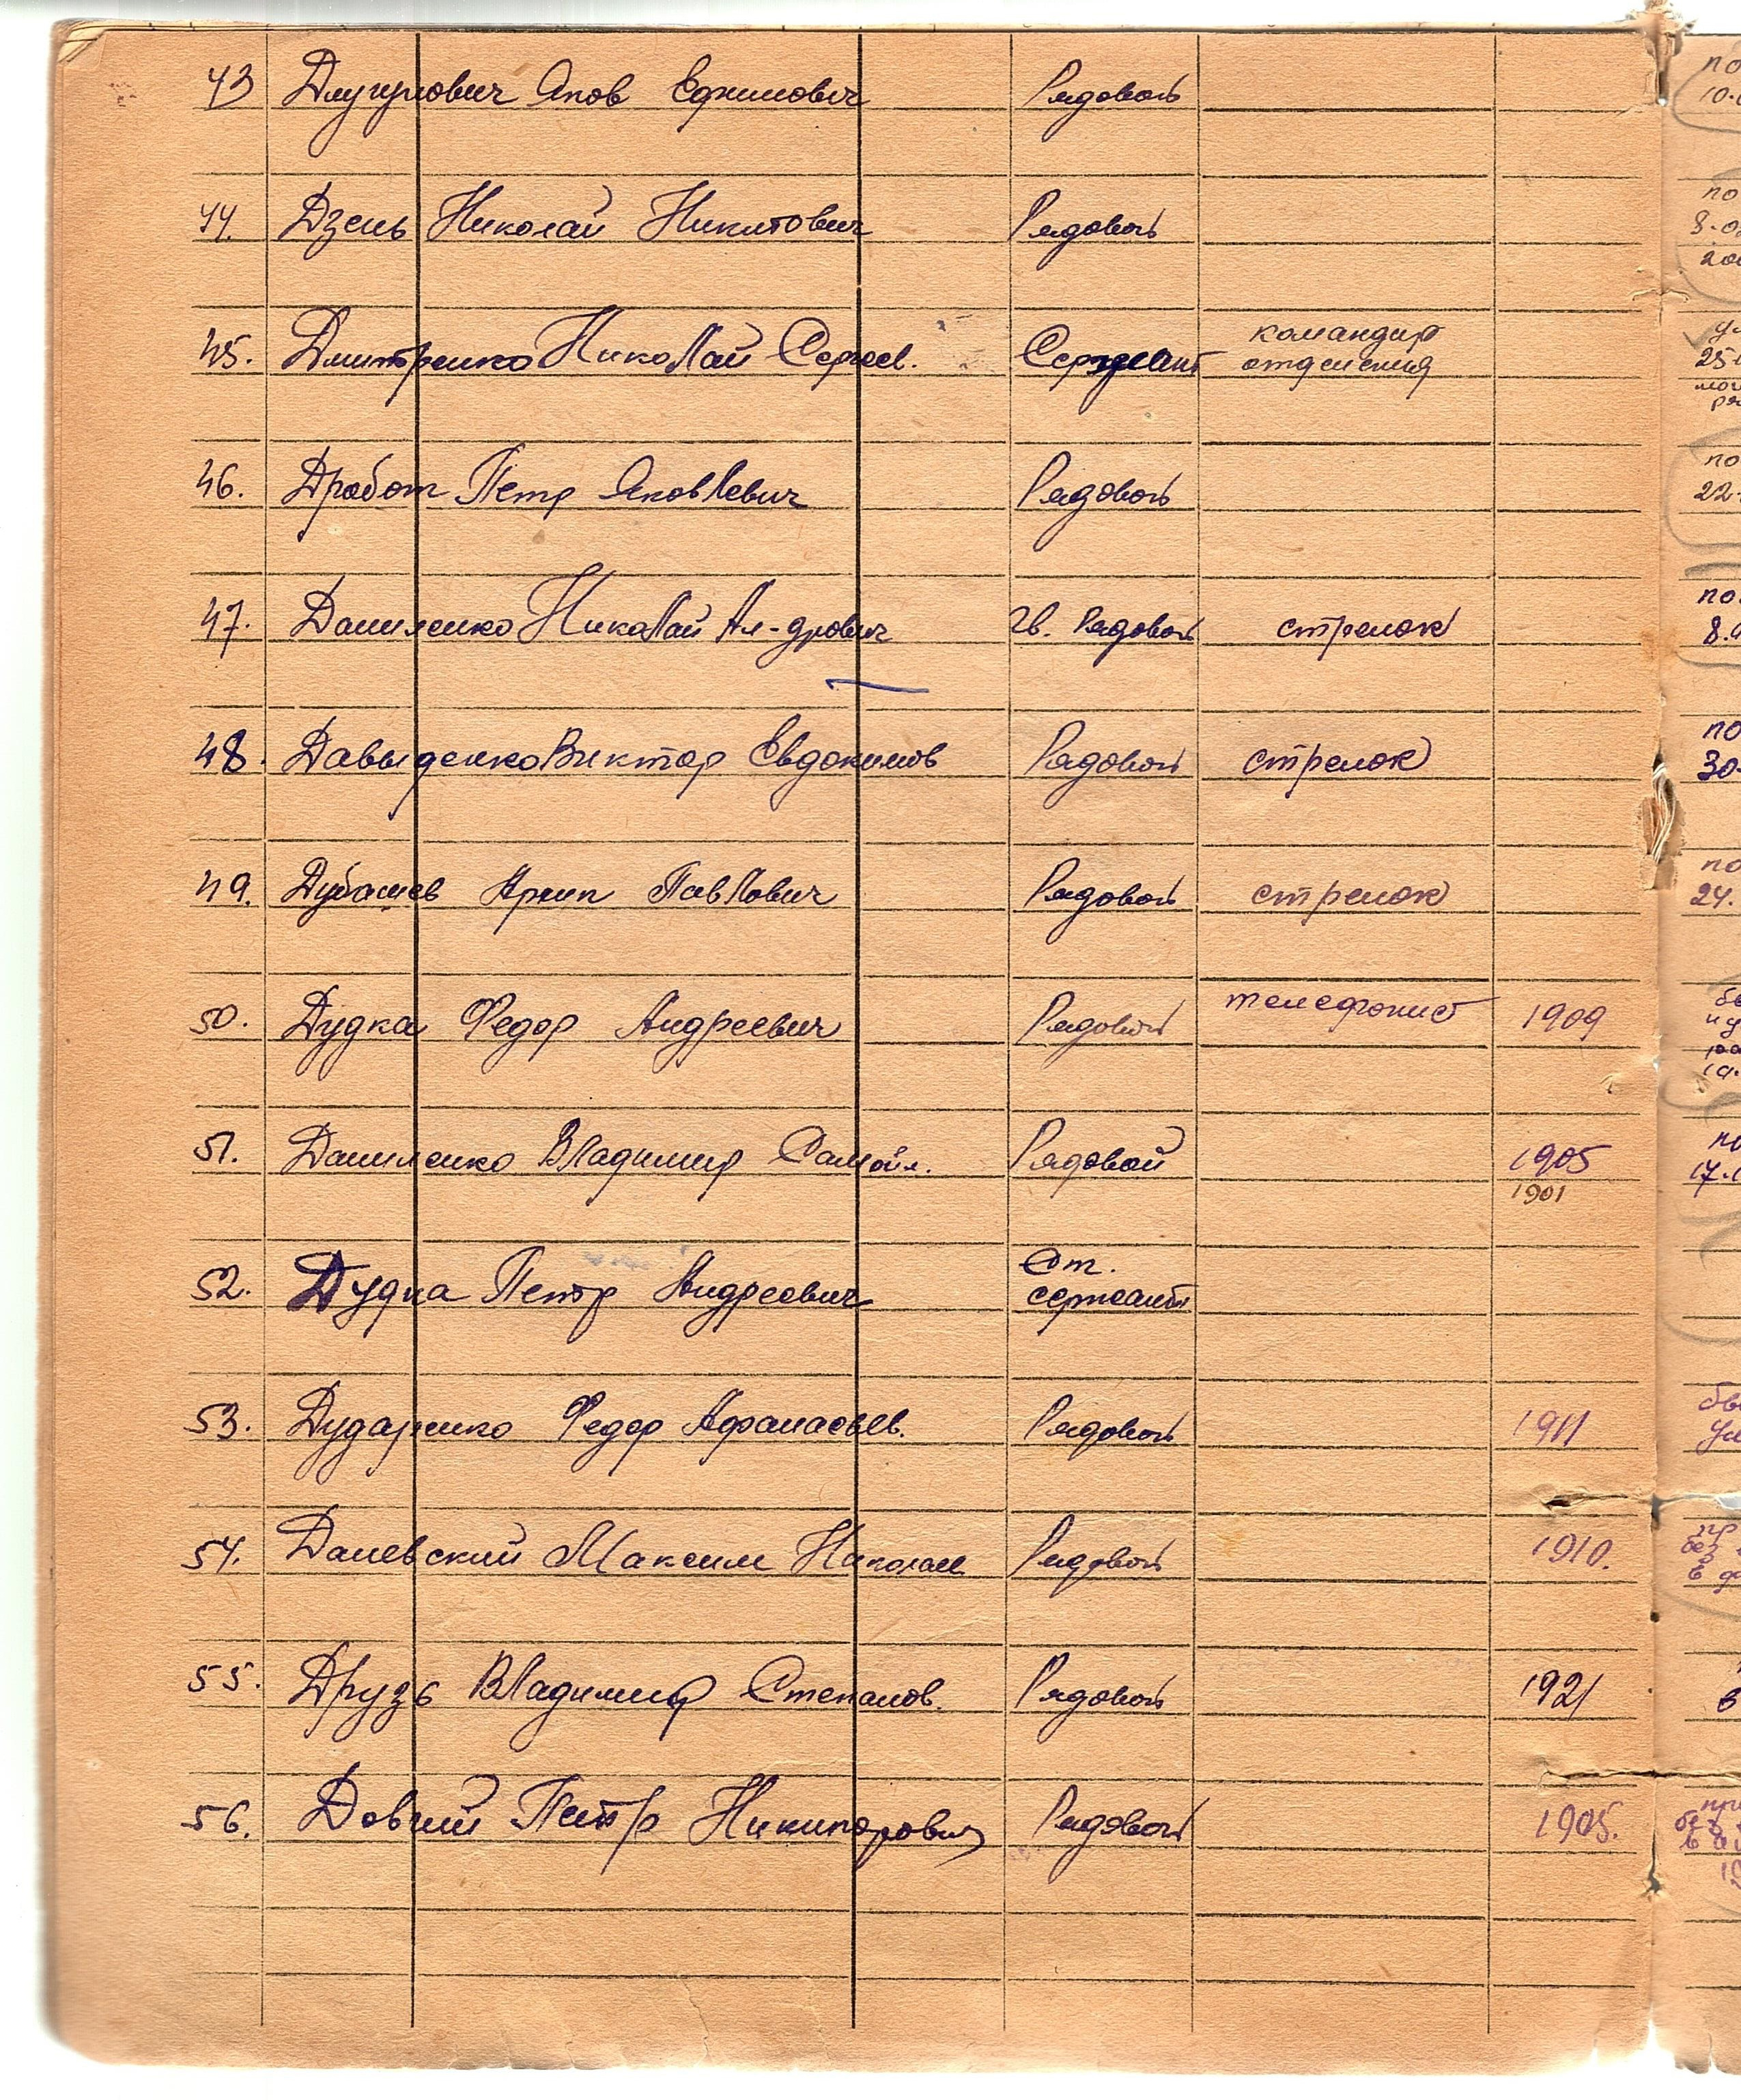 43 Длугулович Яков Ефимович Рядовой
44. Дзень Николай Никитович Рядовой
45. Дмитренко Николай Сергеев. Сержант командир
отделения
46. Дробот Петр Яковлевич Рядовой
47. Даниленко Николай Ал-дрович Гв. Рядовой стрелок
48. Давыденко Виктор Евдокимов Рядовой стрелок
49. Дубашев Архип Павлович Рядовой стрелок
50. Дудка Федор Андреевич Рядовой телефонист 1909
51. Даниленко Владимир Самойл. Рядовой 1905
1901
52. Дудка Петр Андреевич Ст.
сержант
53. Дударенко Федор Афанасьев. Рядовой 1911
54. Даневский Максим Николаев Рядовой 1910.
55. Друзь Владимир Степанов. Рядовой 1921
56. Довгий Петр Никипорович Рядовой 1905.